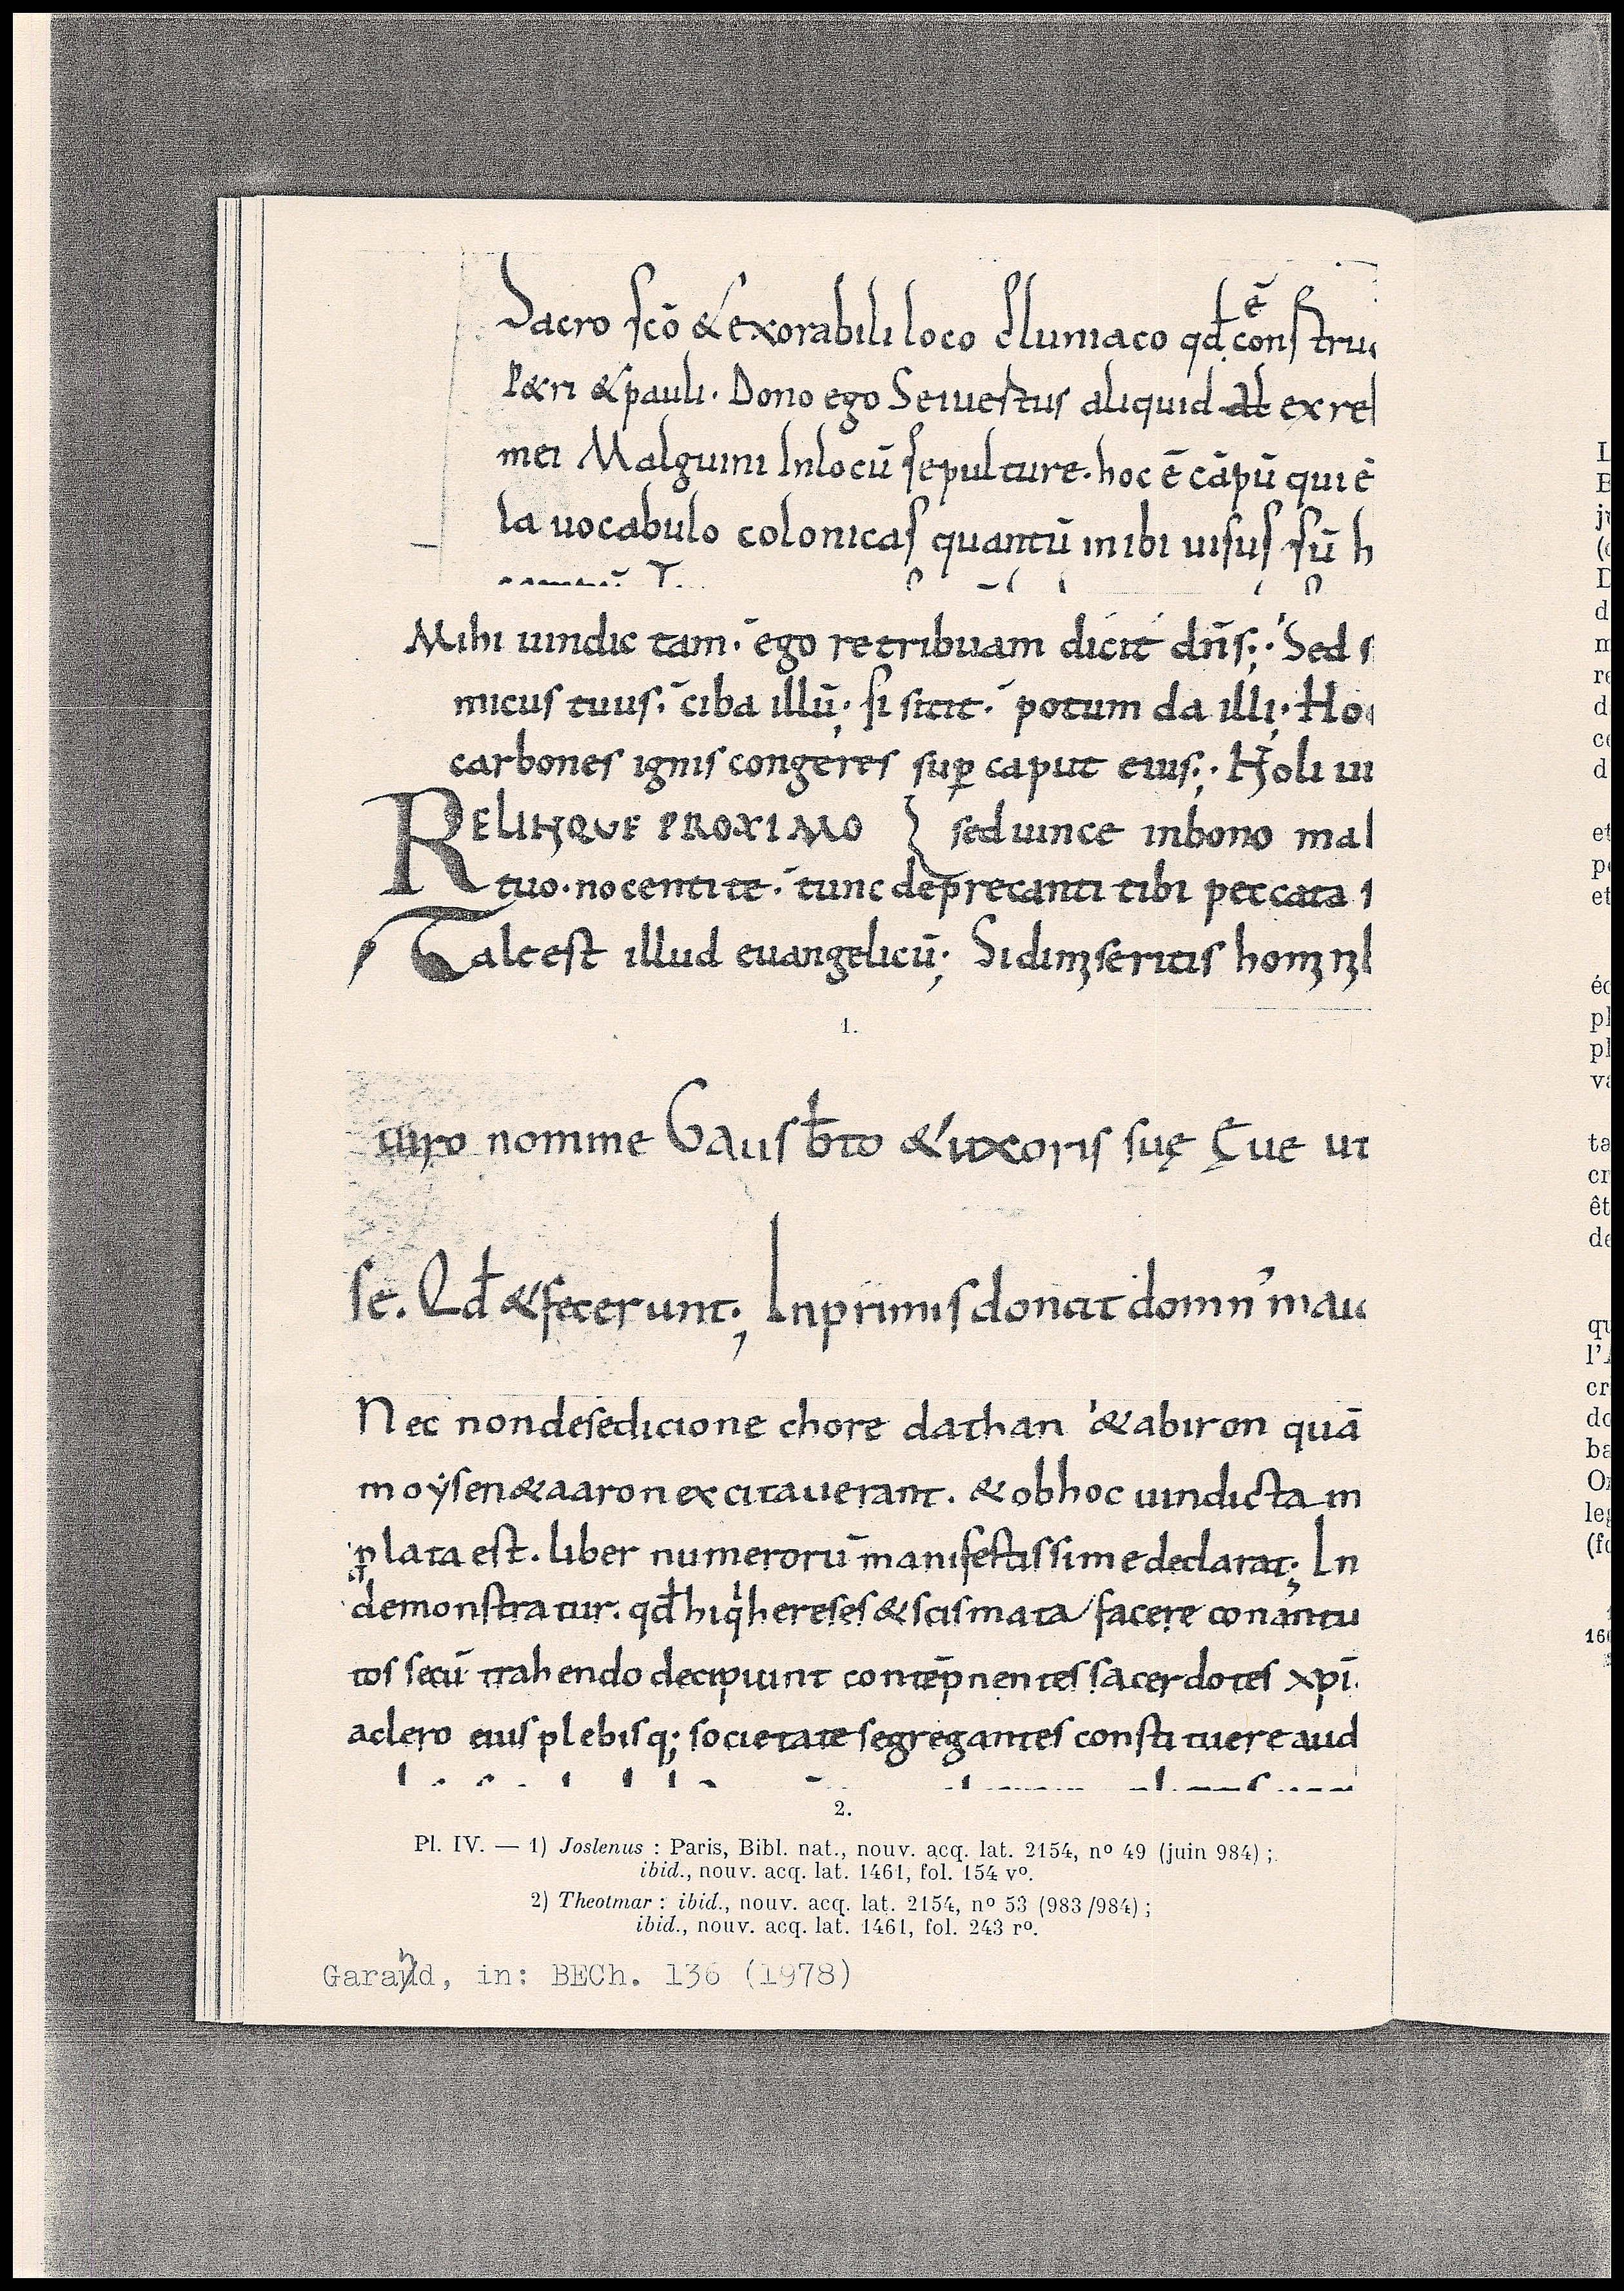 Sacro scō & exorabili loco Cluniaco qđ ē constru
Petri & pauli. Dono ego Seiuestus aliquid ex re
mei Malguini Inlocū sepulture. hoc ē cāpū qui ē
la uocabulo colonicas quantū inibi uisus sū h
Mihi uindic tam. ego retribuam dicit dn̄s; Sed s
micus tuus. ciba illū; si sitit. potum da illi; Ho
carbones ignis congeres sup̱ caput eius; Noli ui
RELINQUE PROXIMO sed uince inbono mal
tuo. nocenti te. tunc deprecanti tibi peccata
Tale est illud euangelicū; Si dimiseritis
1.
nomine Gausb̄to & uxoris suę Ęue ut
se. Qđ & fecerunt; Inprimis donat domn' mau
Nec non desedicione chore dathan & abiron quā
moẏsen & aaron excitauerant. & obhoc uindicta
plata est. liber numerorū manifestissime declarat; In
demonstratur. qđ hi q hereses & scismata facere conantu
tos secū trahendo decipiunt contēpnentes sacerdotes xp̄i
a clero eius plebisq; societate segregantes constituere aud
2.
Pl. IV. — 1) Joslenus : Paris, Bibl. nat., nouv. acq. lat. 2154, nº 49 (juin 984) ;
ibid., nouv. acq. lat. 1461, fol. 154 vº.
2) Theotmar : ibid., nouv. acq. lat. 2154, nº 53 (983/984) ;
ibid., nouv. acq. lat. 1461, fol. 243 rº.
Garand, in: BECh. 136 (1978)